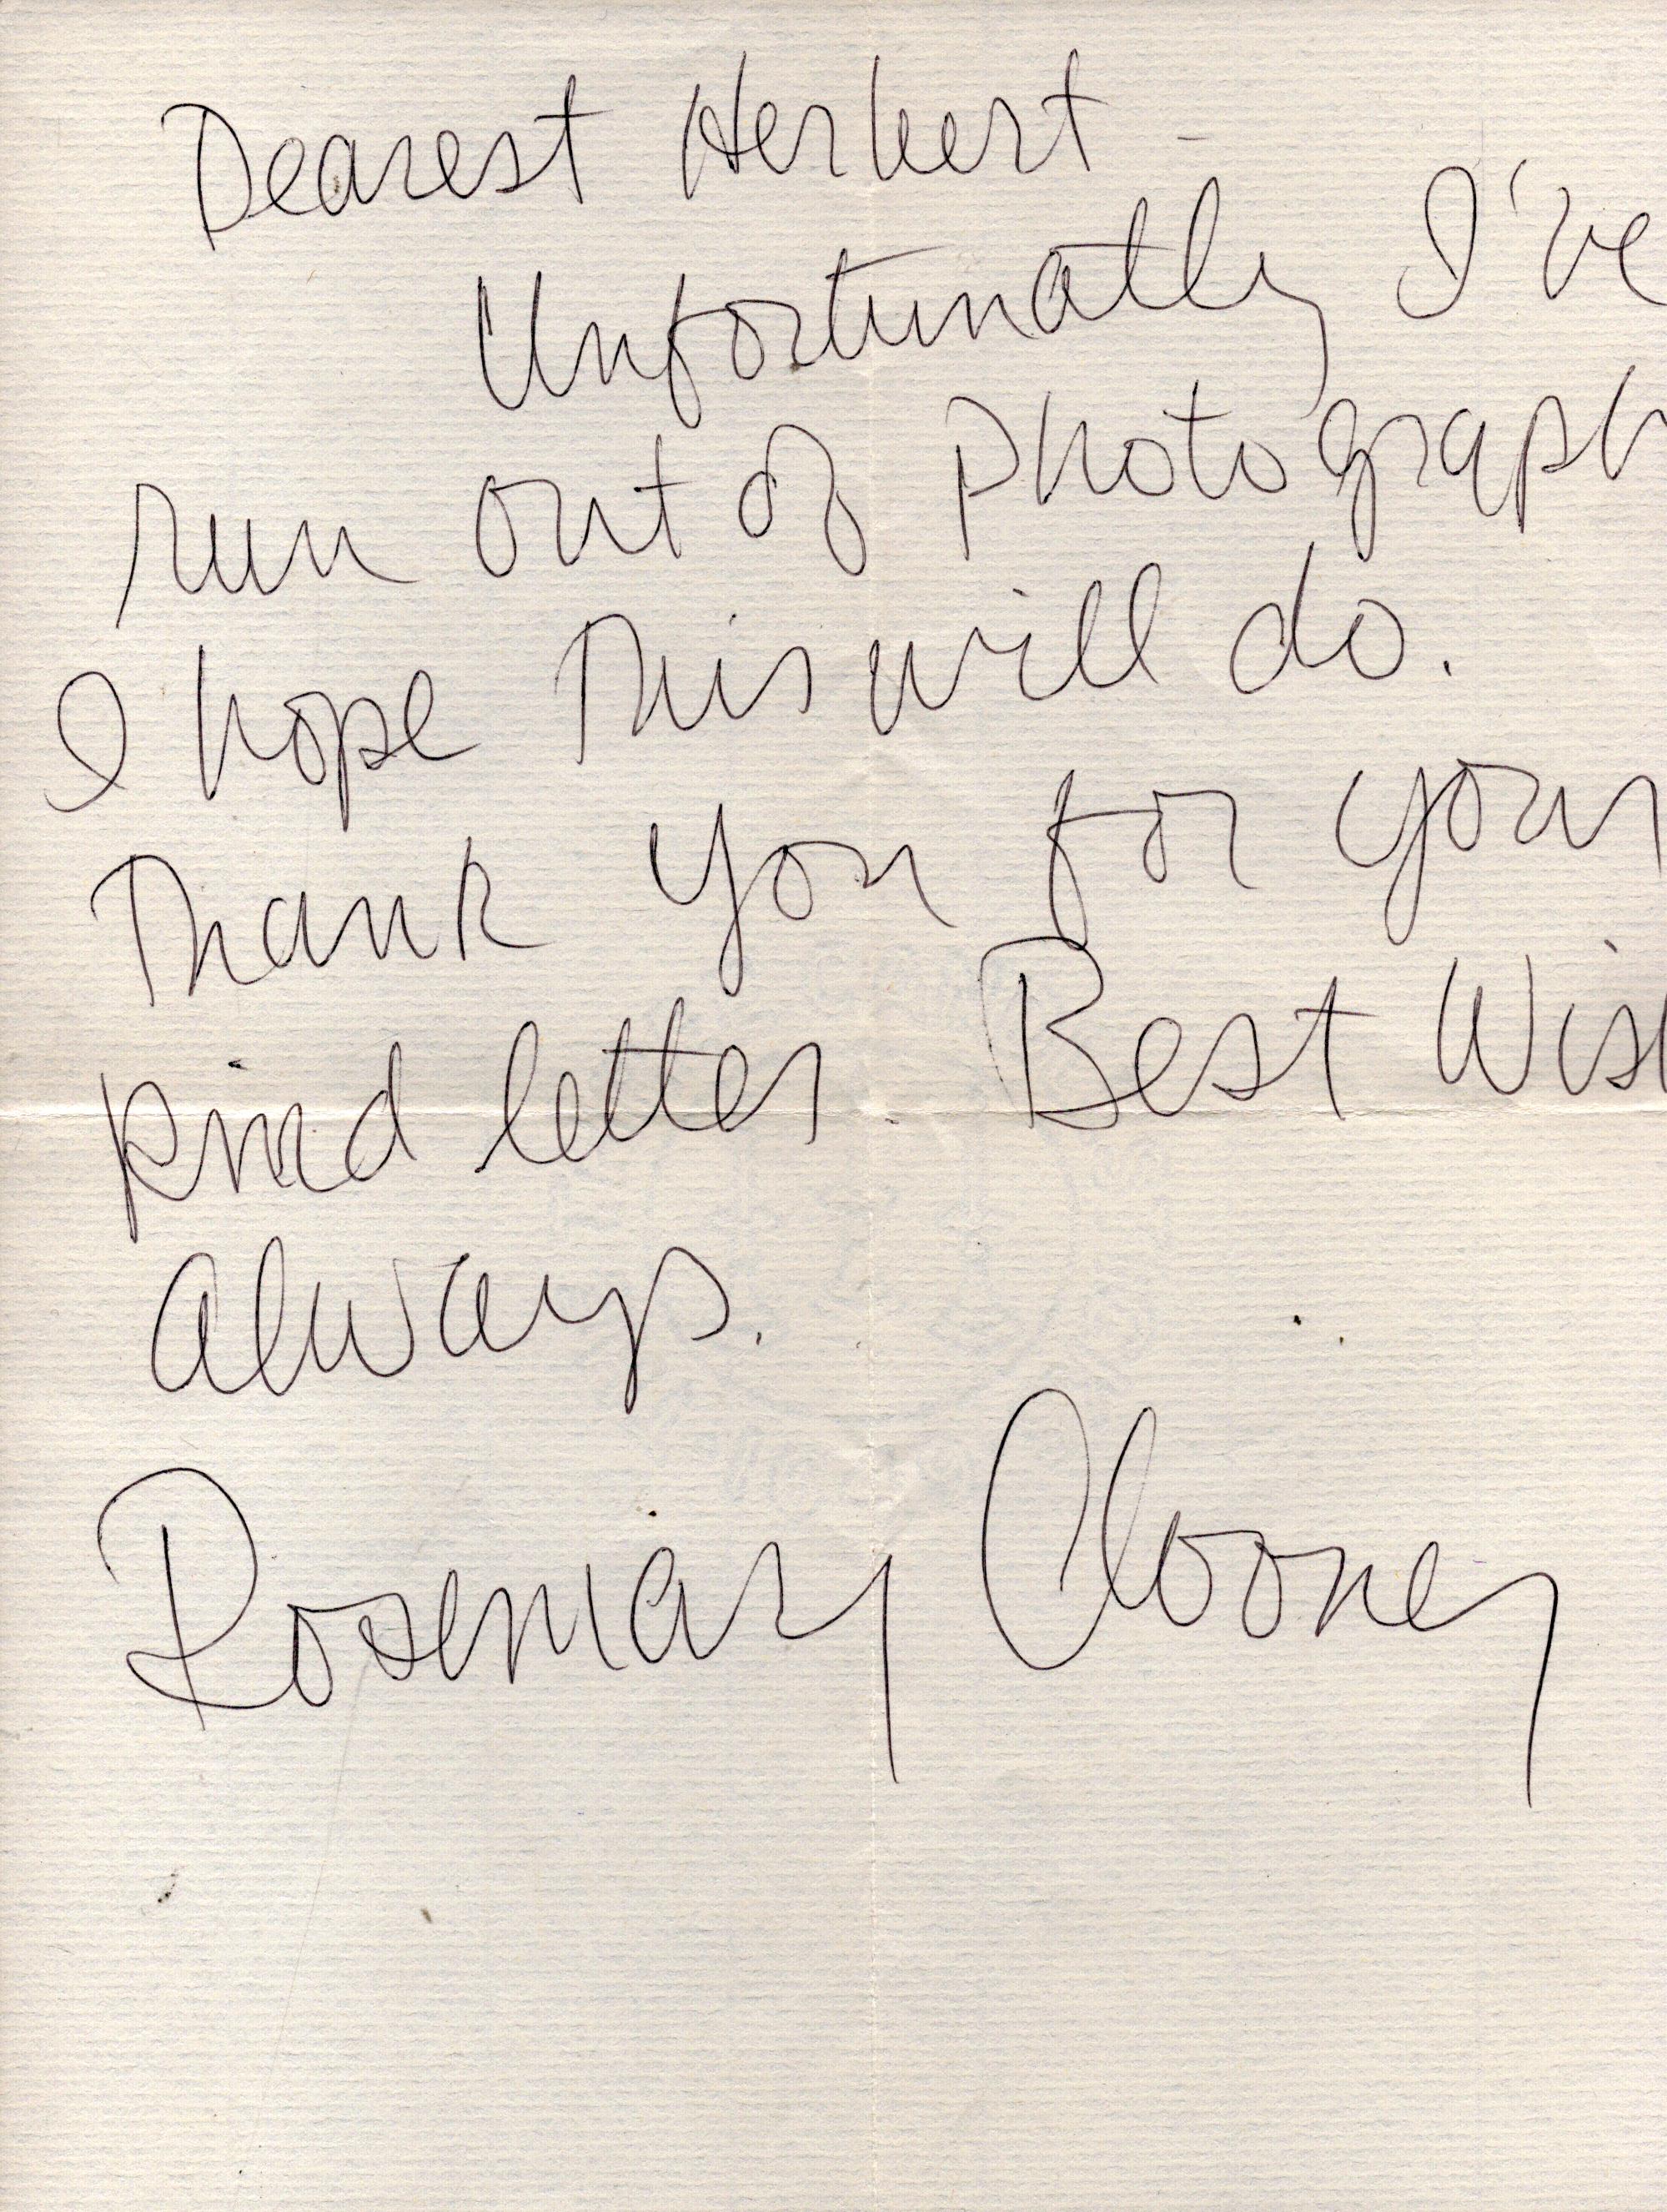 Dearest Herbert -
Unfortunatly I've
run out of photograph
I hope this will do.
Thank you for your
kind letter. Best Wish
always.
Rosemary Clooney